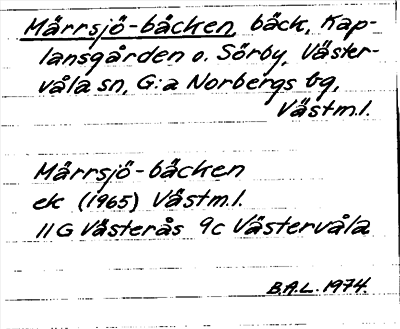 Märrsjö-bäcken, bäck, Kap-
lansgården o. Sörby, Väster-
våla sn, G:a Norbergs bg,
Västm.l.
Märrsjö-bäcken
ek (1965) Västm.l.
11G Västerås 9c Västervåla
B.A.L. 1974.